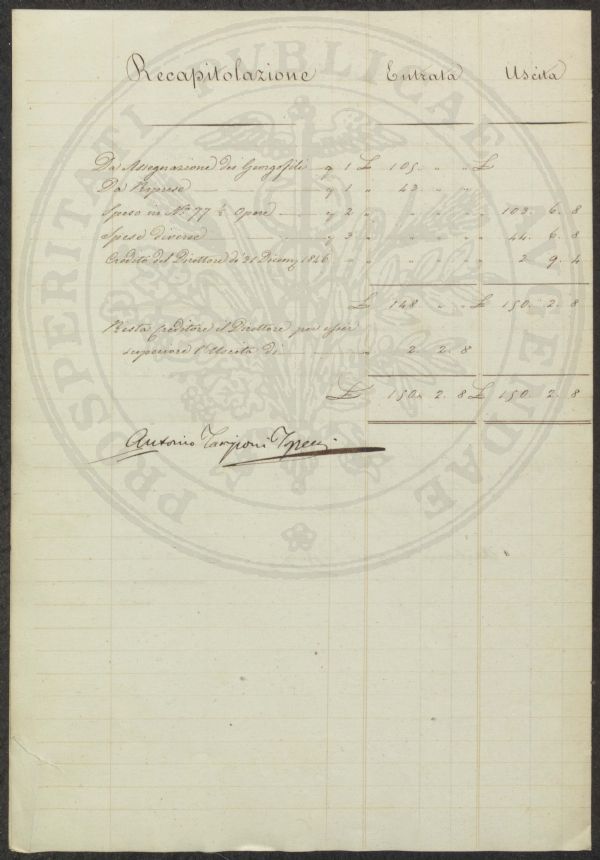 PROSPERITATI PUBLICAE AUGENDAE
Recapitolazione Entrata Uscita
Da Assegnazione dei Georgofili 1 £ 105 " " £
Da Riprese " 1 " 43 " "
Speso in No. 77 ½ Opere 2 " " " " " 103. 6. 8
Spese diverse 3 " " " " " 44. 6. 8
Credito del Direttore di 31 Dicemb 1846 " " " " " " 2. 9. 4
£ 148 " " £ 150. 2. 8
Resta Creditore il Direttore per esser
superiore l'Uscita di " 2. 2. 8
£ 150. 2. 8 £ 150. 2. 8
Antonio Targioni